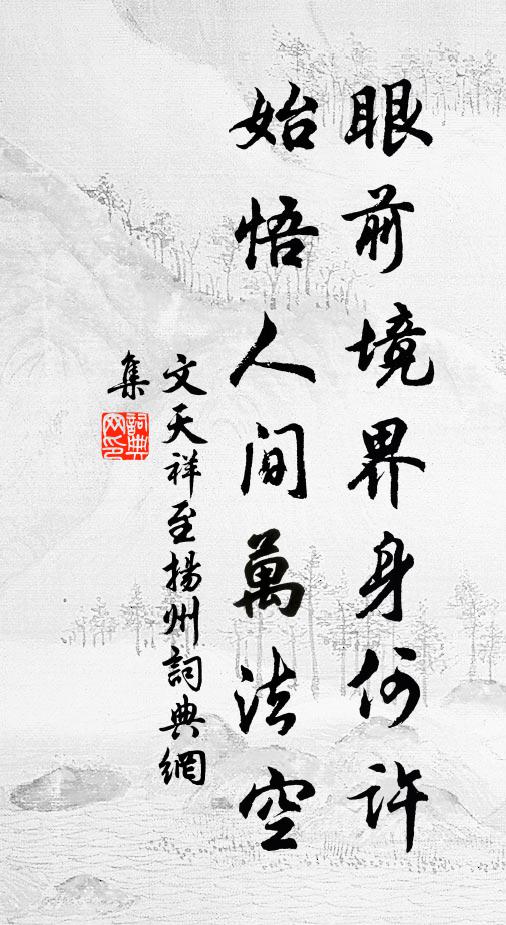 眼前境界身何許
始悟人間萬法空
文天祥至揚州詞典網
集
詞典網印